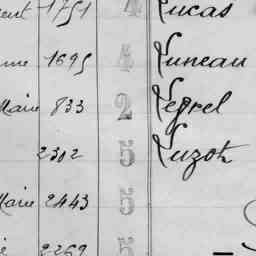 ent 1751 4 Lucas
nne 1695 4 Luneau
Marie 833 2 Legrel
2302 5 Luzot
Marie 2443 5
ie 2269 5